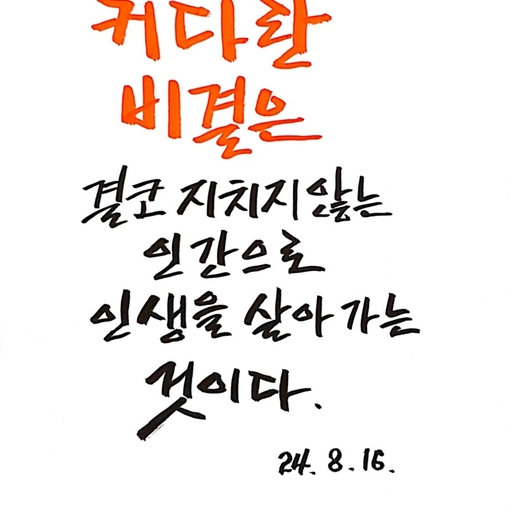 커다란
비결은
결코 지치지 않는
인간으로
인생을 살아가는
것이다.
24. 8. 16.